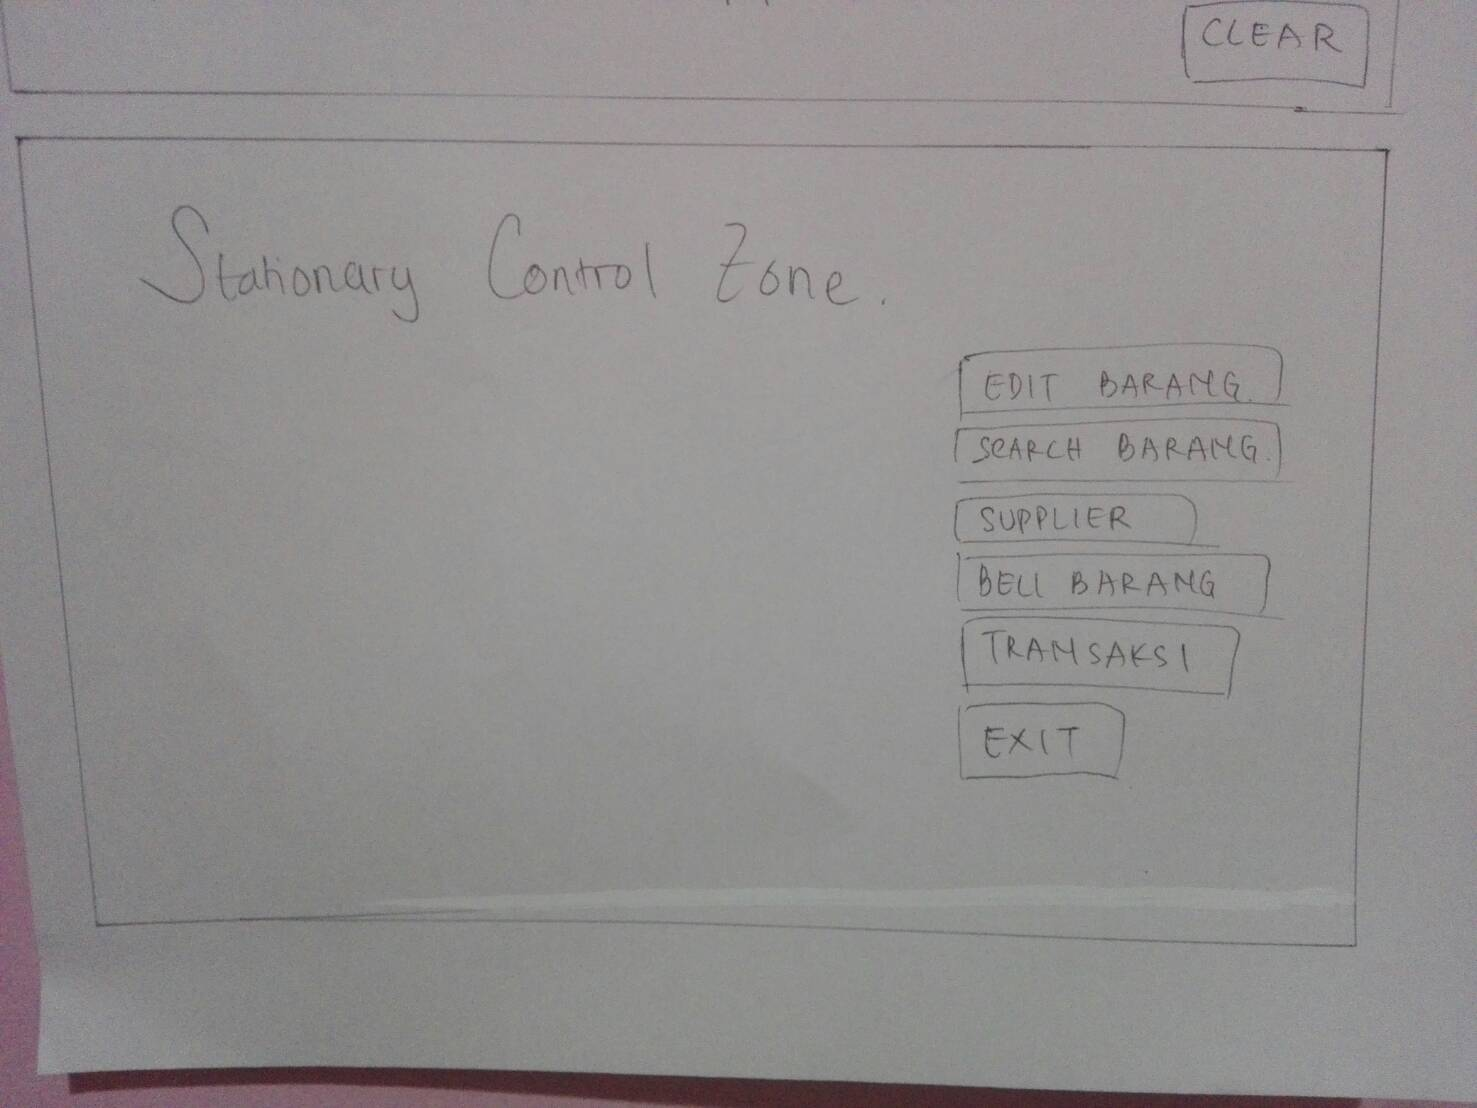 CLEAR
Stationary Control Zone.
EDIT BARANG.
SEARCH BARANG.
SUPPLIER
BELI BARANG
TRANSAKSI
EXIT